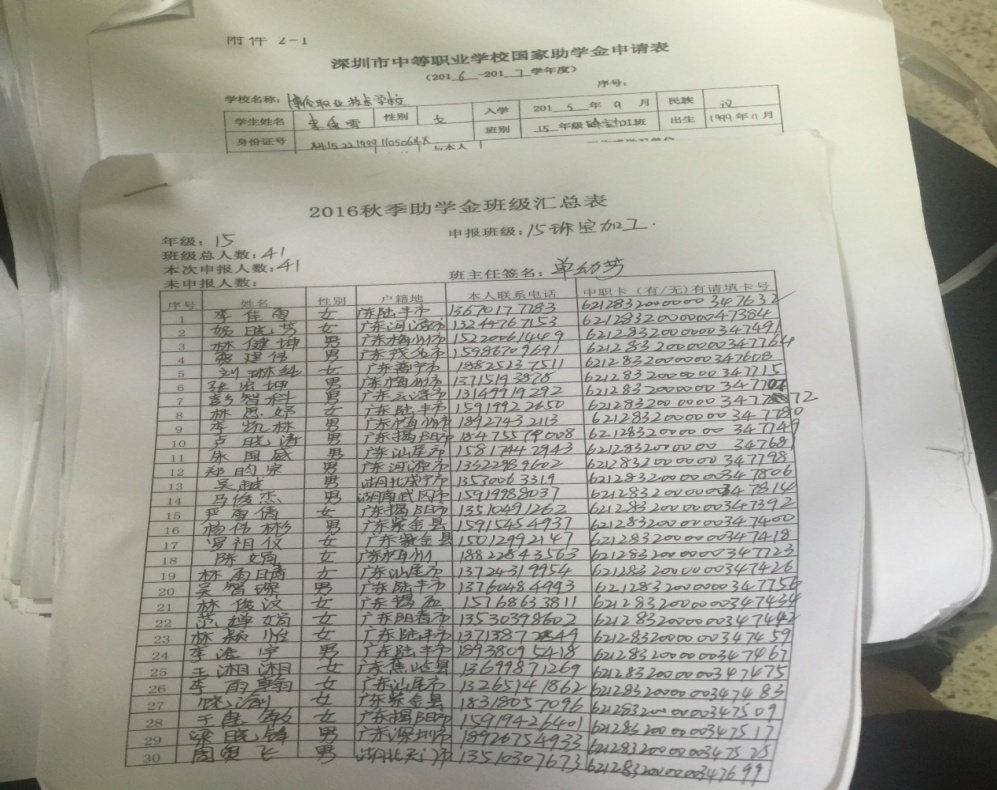 附件 2-1
深圳市中等职业学校国家助学金申请表
(201 6 -201 7 学年度)
序号:
学校名称: 博伦职业技术学校
学生姓名 性别 女 入学 201 5 年 9 月 民族 汉
身份证号 班别 15 年级 班 出生 1999 年 11 月
与本人
2016秋季助学金班级汇总表
年级: 15 申报班级: 15 珠宝加工.
班级总人数: 41
本次申报人数: 41 班主任签名:
未申报人数:
序号 姓名 性别 户籍地 本人联系电话 中职卡(有/无)有请填卡号
1 李佳南 女 广东陆丰市 13670177783 6212832000000347632
2 姚晓芳 女 广东河源市 13244767153
3 林健坤 男 广东梅州市 15220061449 6212832000000347491
4 建伟 男 广东茂名市 15986709691 6212832000000347764
5 刘琳 女 广东 市 18825137511 6212832000000347608
6 张 坤 男 广东梅州市 13715193878 6212832000000347715
7 彭智科 男 广东云浮市 13149919292
8 林思妤 女 广东陆丰市 15919922650
9 李凯林 男 广东梅州市 18927432113 6212832000000347780
10 卢晓涛 男 广东揭阳市 18475579008 6212832000000347749
11 朱国威 男 广东汕尾市 15817442943
12 郑昀 男 广东河源市 13322939602 6212832000000347798
13 吴越 男 湖北 市 13530063319 6212832000000347806
14 马俊杰 男 湖南武冈市 15919988037 6212832000000347814
15 严雨倩 女 广东揭阳市 13510491262 6212832000000347392
16 杨伟彬 男 广东紫金县 15915454937 6212832000000347400
17 罗祖仪 女 广东紫金县 15012992147 6212832000000347418
18 陈嫡 女 广东梅州 18822843563 6212832000000347723
19 林雨晴 女 广东汕尾市 13724319954 6212832000000347426
20 吴智 男 广东陆丰市 13760484993 6212832000000347756
21 林俊汶 女 广东揭 15768633811 6212832000000347434
22 范婵娟 女 广东阳春市 13530398602 6212832000000347442
23 林颖怡 女 广东陆丰市 6212832000000347459
24 李 宇 男 广东陆丰市 18938095418 6212832000000347467
25 王湘湘 女 广东蕉岭县 13699871269 6212832000000347475
26 李雨 女 广东汕尾市 13265141862 6212832000000347483
27 女 广东紫金县 18318057096 6212832000000347509
28 于惠敏 女 广东揭阳市 15919426401 6212832000000347517
29 梁晓锋 男 广东深圳市 18926754933 6212832000000347525
30 周勇飞 男 湖北天门市 13510307673 6212832000000347699